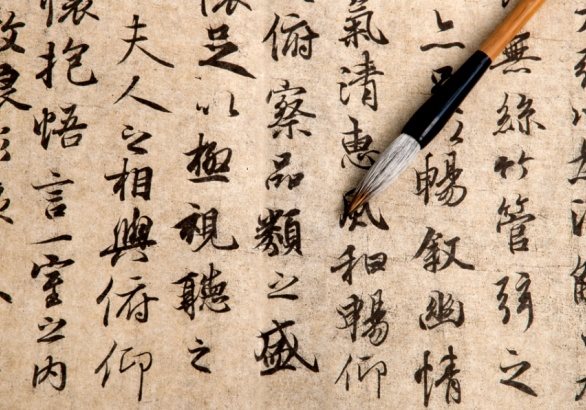 無絲竹管弦之
亦足以暢叙幽情
氣清惠風和暢仰
俯察品類之盛
懷足以極視聽之
夫人之相與俯仰
懷抱悟言一室之內
放浪